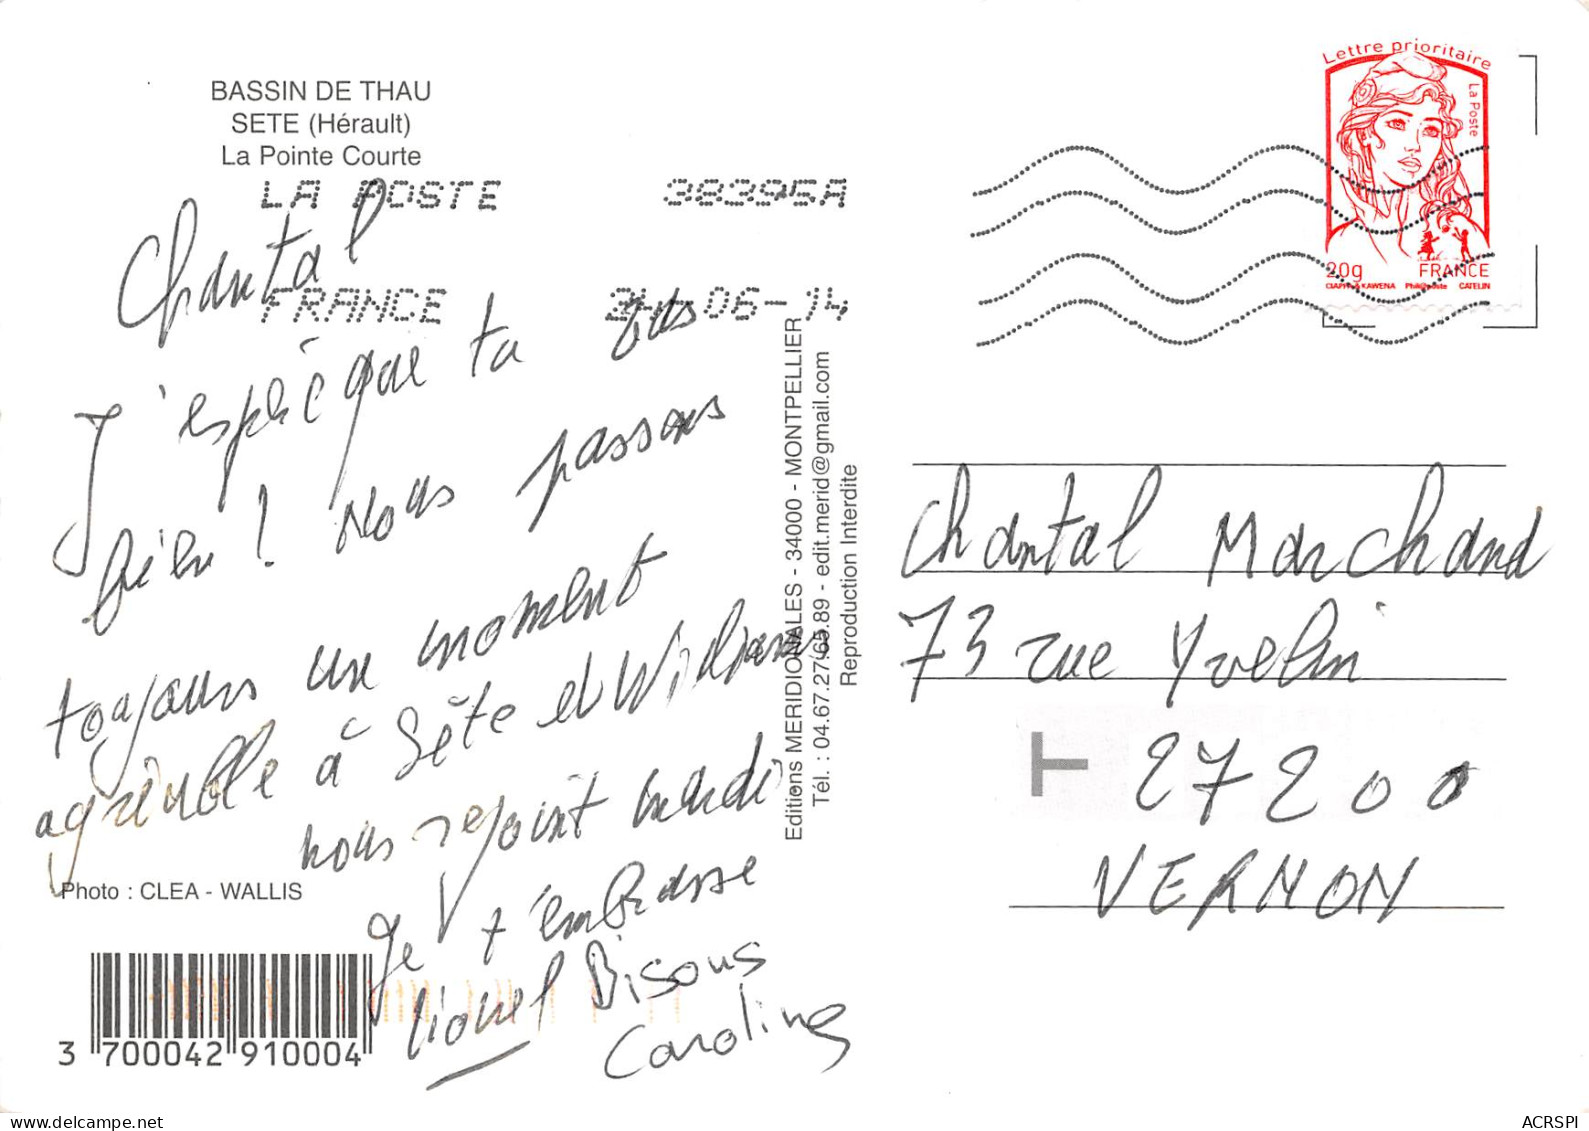 BASSIN DE THAU
SETE (Hérault)
La Pointe Courte
LA POSTE 38395A
FRANCE -06-14
Chantal
J'espère que tu vas
bien ! Nous passons
toujours un moment
agréable à Sète et William
nous rejoint mardi
Je t'embrasse
Lionel Bisous
Caroline
Photo : CLEA - WALLIS
3 700042 910004
Editions MERIDIONALES - 34000 - MONTPELLIER
Tél. : 04.67.27.65.89 - edit.merid@gmail.com
Reproduction Interdite
Lettre prioritaire
La Poste
20g FRANCE
CIAPPA & KAWENA Phil@poste CATELIN
Chantal Marchand
73 rue Yvelin
27200
VERNON
ACRSPI